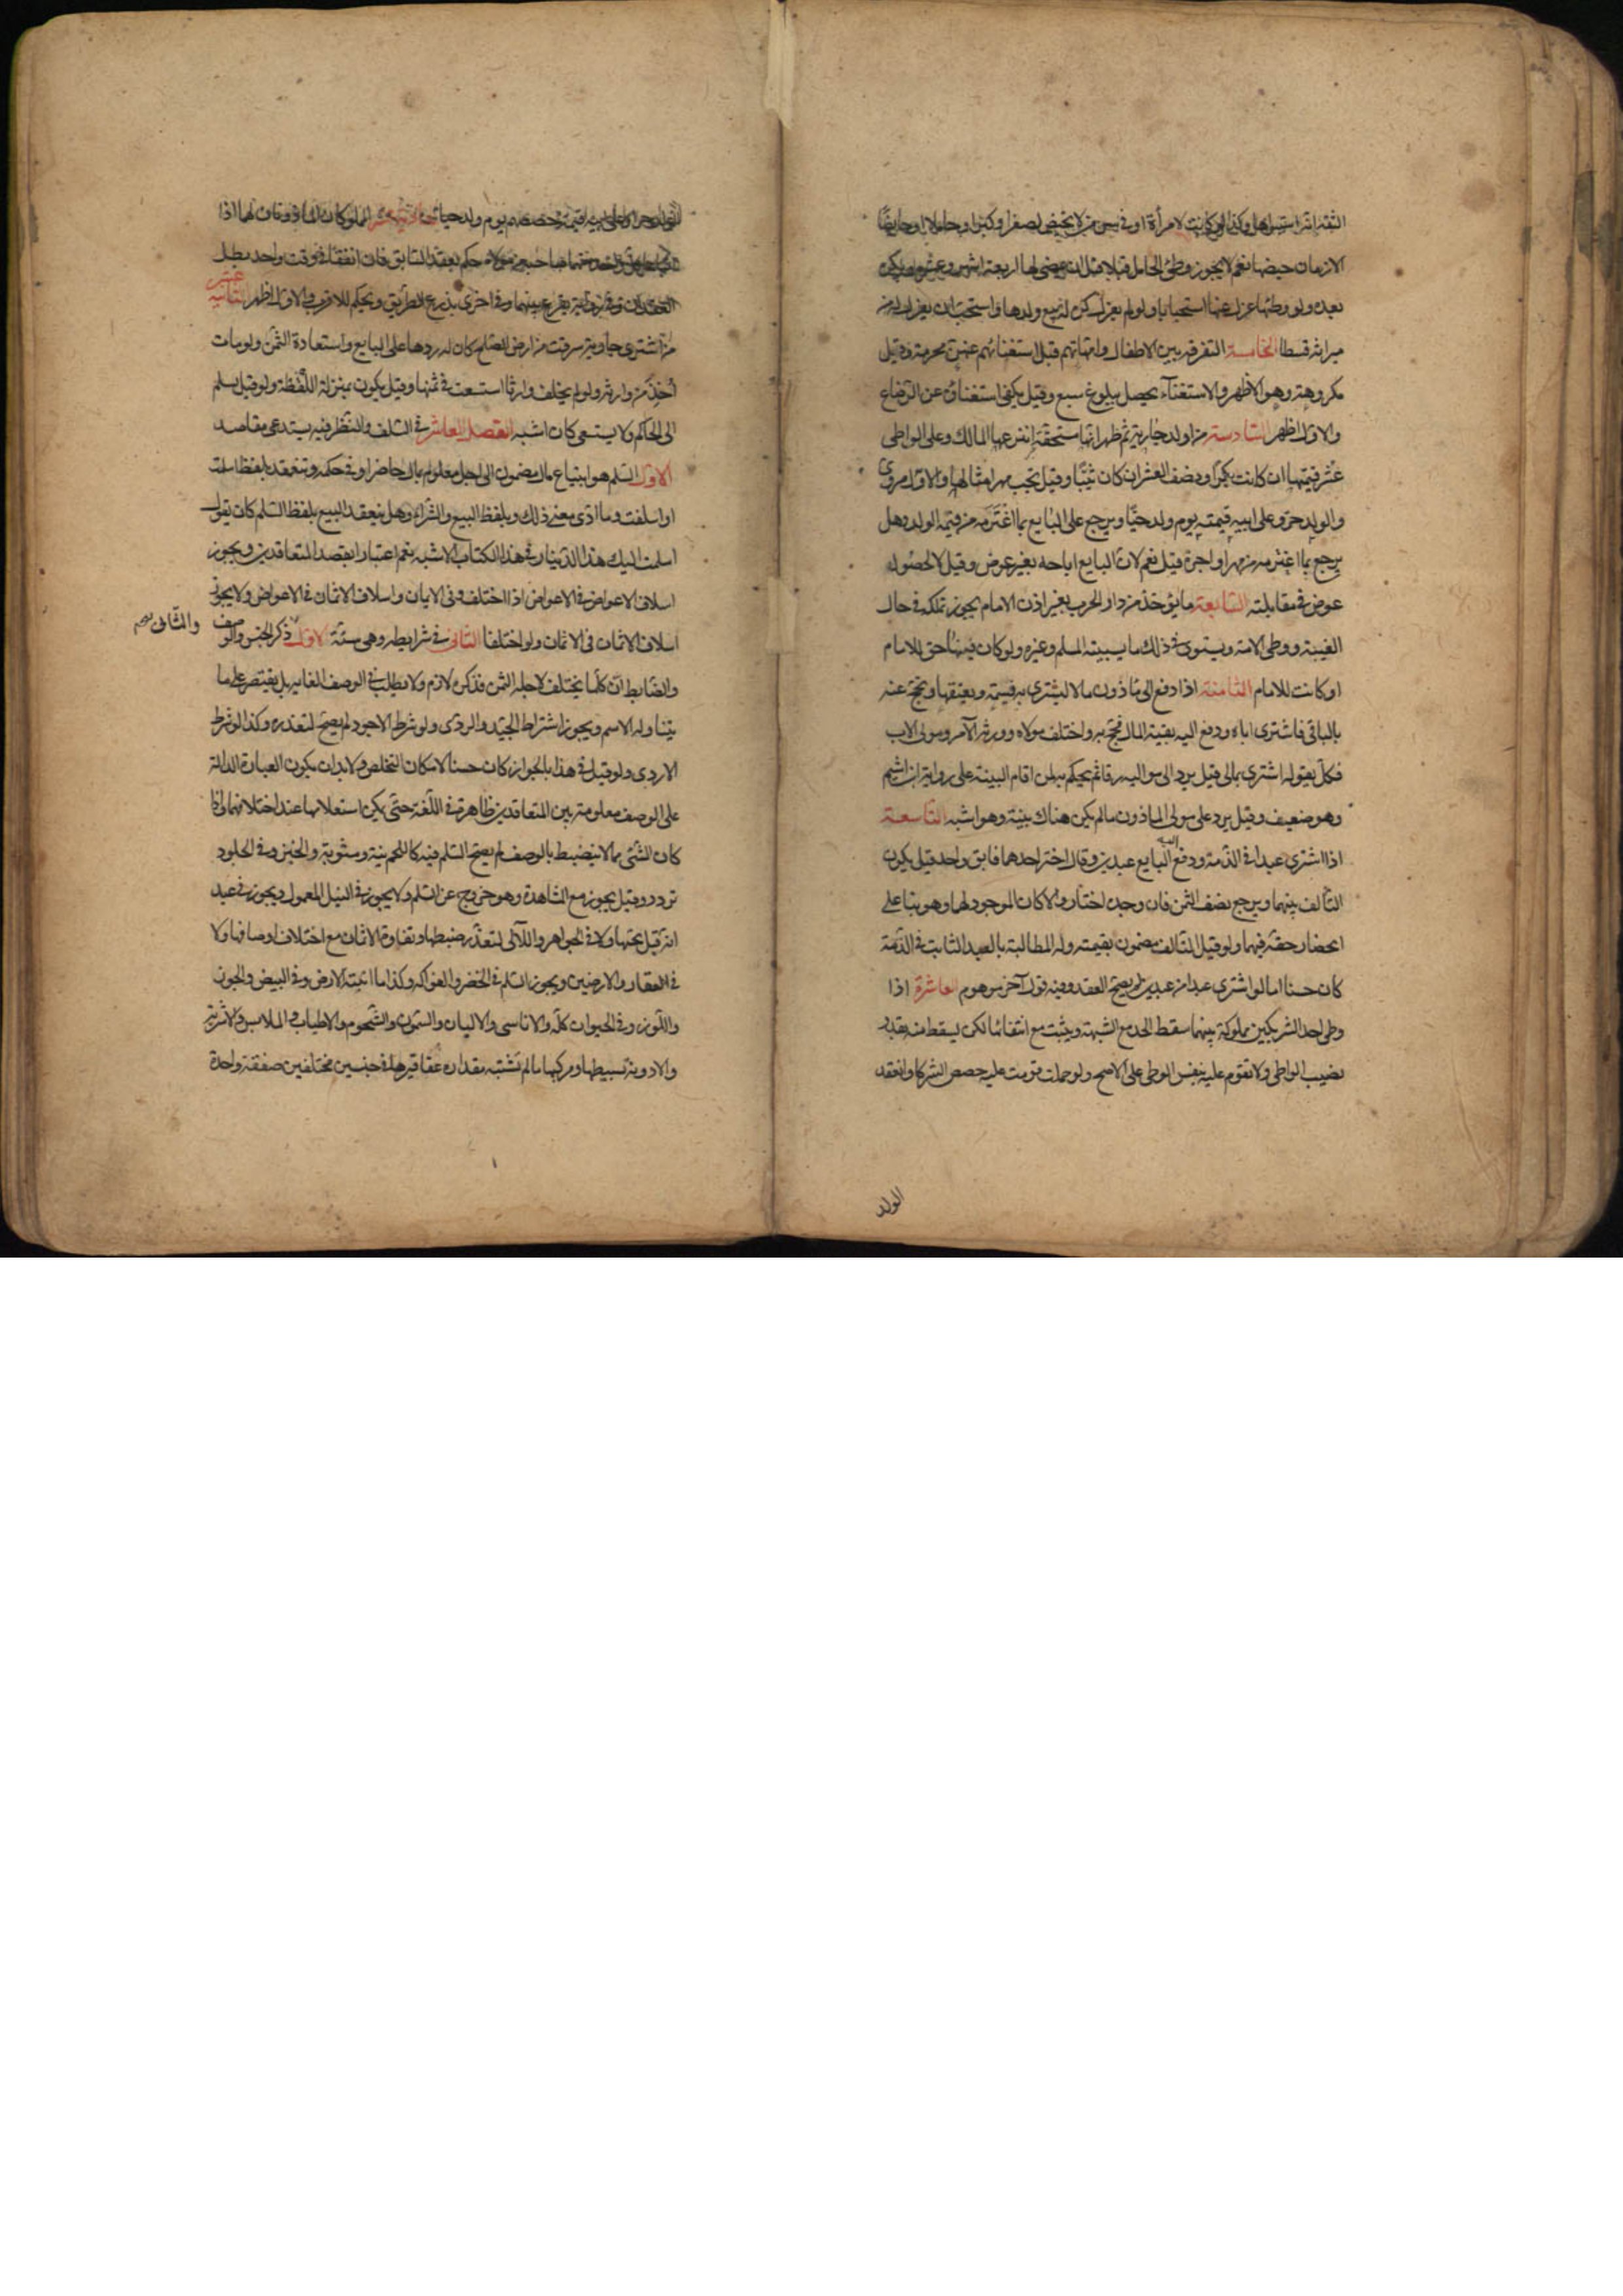 الثقة انه استبراها وكذا لو كانت لامرأة او في سن من لا تحيض لصغر او كبر او حاملا او حايضا
الا زمان حيضها نعم لا يجوز وطئ الحامل قبلا قبل ان يمضي لها اربعة اشهر وعشرة ويكره
بعده ولو وطئها عزل عنها استحبابا ولو لم يعزل كره له بيع ولدها واستحب ان يعزل له من
ميراثه قسطا الخامسة التفرقة بين الاطفال وامهاتهم قبل استغنائهم عنهن محرمة وقيل
مكروهة وهو الاظهر والاستغناء يحصل ببلوغ سبع وقيل يكفي استغناؤه عن الرضاع
والاول اظهر السادسة من اولد جارية ثم ظهر انها مستحقة انتزعها المالك وعلى الواطى
عشر قيمتها ان كانت بكرا ونصف العشر ان كان ثيبا وقيل يجب مهر امثالها والاول مروى
والولد حر وعلى ابيه قيمته يوم ولد حيا ويرجع على البايع بما اغترمه من قيمة الولد وهل
يرجع بما اغترمه من مهر او اجرة قيل نعم لان البايع اباحه بغير عوض وقيل لا لحصول
عوض في مقابلته السابعة ما يؤخذ من دار الحرب بغير اذن الامام يجوز تملكه في حال
الغيبة ووطى الامة ويستوى في ذلك ما يسبيه المسلم وغيره ولو كان فيها حق للامام
او كانت للامام الثامنة اذا دفع الى مأذون مالا ليشترى به قسمة ويعتقها ويحج عنه
بالباقى فاشترى اباه ودفع اليه بقية المال فحج به واختلف مولاه وورثة الآمر ومولى الاب
فكل يقول اشترى بمالى قيل يرد الى مواليه رقا ثم يحكم به لمن اقام البينة على رواية ابن اشيم
وهو ضعيف وقيل يرد على مولى الماذون ما لم يكن هناك بينة وهو اشبه التاسعة
اذا اشترى عبدا فى الذمة ودفع البايع اليه عبدين وقال اختر احدهما فابق واحد قيل يكون
التالف بينهما ويرجع بنصف الثمن فان وجده اختار والا كان الموجود لهما وهو بنا على
انحصار حقه فيهما ولو قيل التالف مضمون بقيمته وله المطالبة بالعبد الثابت فى الذمة
كان حسنا اما لو اشترى عبدا من عبدين لم يصح العقد وفيه قول آخر موهوم العاشرة اذا
وطى احد الشريكين مملوكة بينهما سقط الحد مع الشبهة ويثبت مع انتفائها لكن يسقط منه بقدر
نصيب الواطى ولا تقوم عليه بنفس الوطى على الاصح ولو حملت قومت عليه حصص الشركا وانعقد
الولد
الولد حرا وعلى ابيه قيمة حصصهم يوم ولد حيا الحادية عشر المملوكان الماذونان لهما اذا
ابتاع كل واحد منهما صاحبه من مولاه حكم بعقد السابق فان اتفقا فى وقت واحد بطل
العقدان وفى رواية يقرع بينهما وفى اخرى بذرع الطريق ويحكم للاقرب والاول اظهر الثانية عشر
من اشترى جارية سرقت من ارض الصلح كان له ردها على البايع واستعادة الثمن ولو مات
اخذ من وارثه ولو لم يخلف وارثا استسعت فى ثمنها وقيل يكون بمنزلة اللقطة ولو قيل يسلم
الى الحاكم ولا يستسعى كان اشبه الفصل العاشر فى السلف والنظر فيه يستدعى مقاصد
الاول السلم هو ابتياع مال مضمون الى اجل معلوم بمال حاضر او فى حكمه وتنعقد بلفظ اسلمت
او اسلفت وما ادى معنى ذلك وبلفظ البيع والشراء وهل ينعقد البيع بلفظ السلم كان يقول
اسلمت اليك هذا الدينار فى هذا الكتاب الاشبه نعم اعتبارا بقصد المتعاقدين ويجوز
اسلاف الاعواض فى الاعواض اذا اختلف وفى الاثمان واسلاف الاثمان فى الاعواض ولا يجوز
اسلاف الاثمان فى الاثمان ولو اختلفا الثانى فى شرايطه وهى ستة الاول ذكر الجنس والوصف
والضابط ان كلما يختلف لاجله الثمن فذكره لازم ولا يطلب فى الوصف الغاية بل يقتصر على ما
يتناوله الاسم ويجوز اشتراط الجيد والردى ولو شرط الاجود لم يصح لتعذره وكذا لو شرط
الاردى ولو قيل فى هذا بالجواز كان حسنا لامكان التخلص ولا بد ان يكون العبارة الدالة
على الوصف معلومة بين المتعاقدين ظاهرة فى اللغة حتى يمكن استعلامها عند اختلافهما واذا
كان الشئ مما لا ينضبط بالوصف لم يصح السلم فيه كاللحم نيه ومشويه والخبز وفى الجلود
تردد وقيل يجوز مع المشاهدة وهو خروج عن السلم ولا يجوز فى النبل المعمول ويجوز فى عيد
انه قبل نحتها ولا فى الجواهر واللآلى لتعذر ضبطها وتفاوت الاثمان مع اختلاف اوصافها ولا
فى العقار والارضين ويجوز السلم فى الخضر والفواكه وكذا ما انبتته الارض وفى البيض والجوز
واللوز وفى الحيوان كله والاناسى والالبان والسمون والشحوم والاطياب والملابس والاشربة
والادوية بسيطها ومركبها ما لم تشتبه مقدار عقاقيرها فى جنسين مختلفين صفقة واحدة